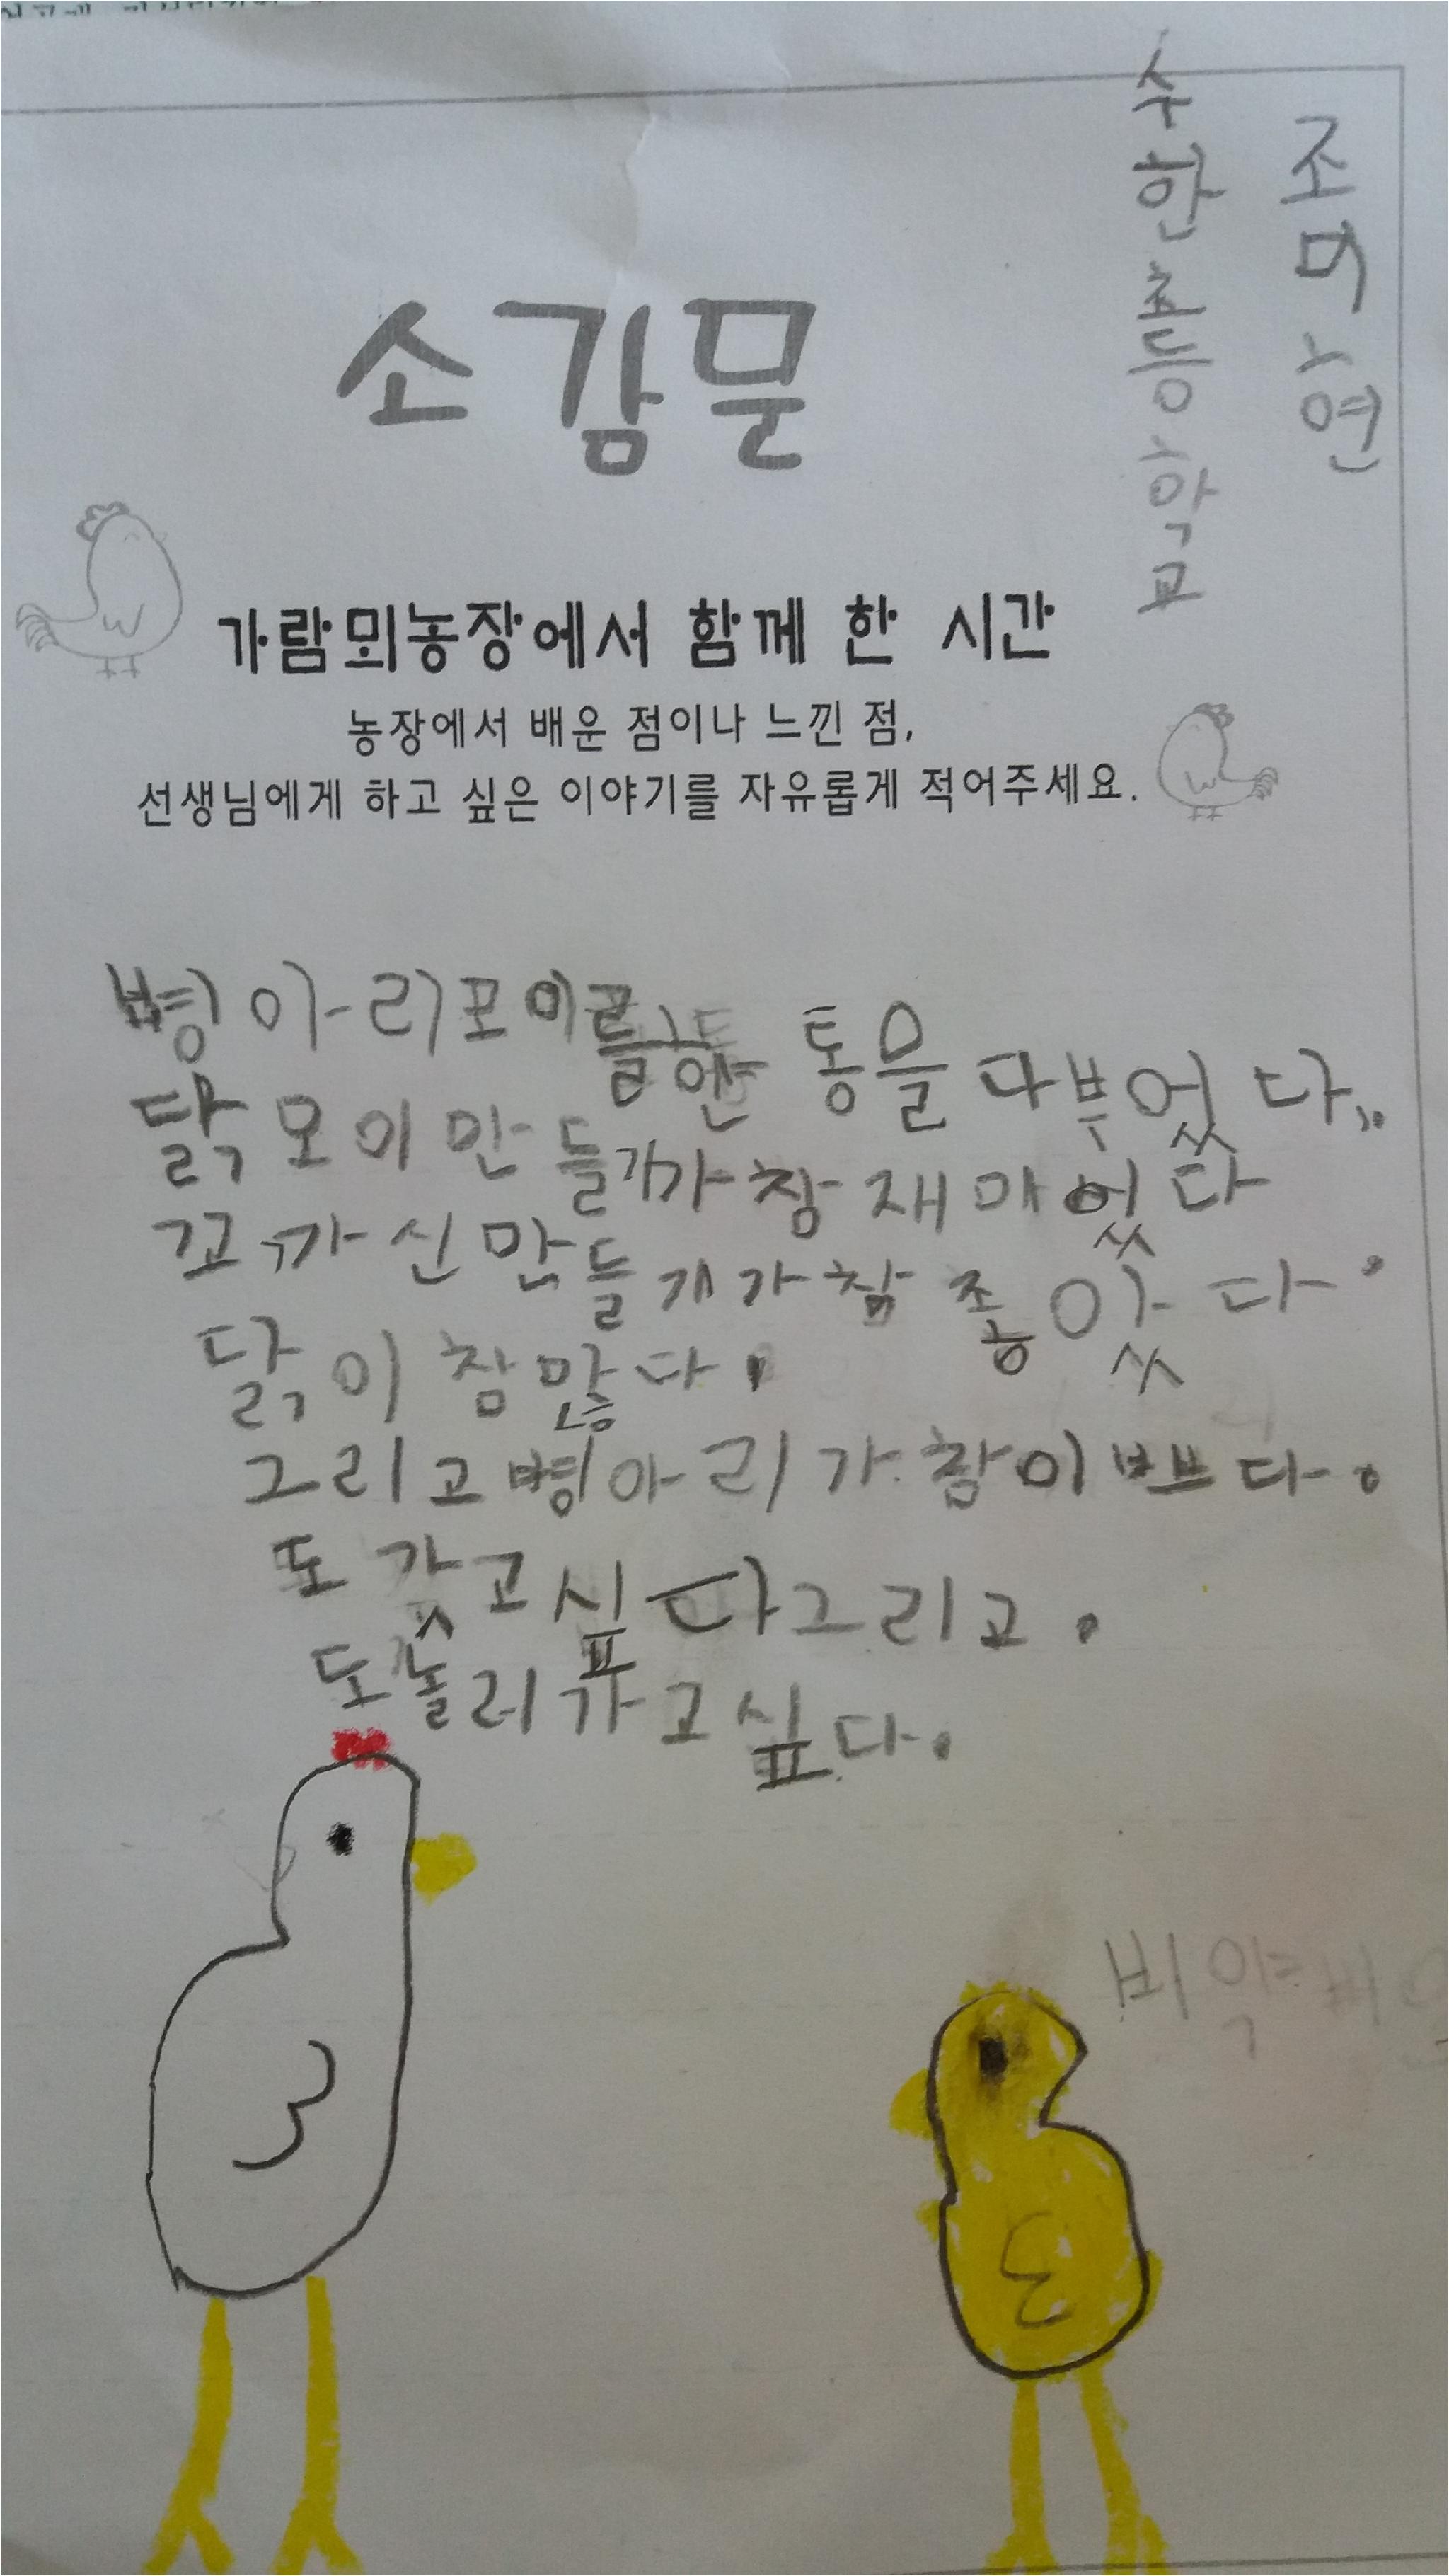 수한초등학교
조미연
소감문
가람뫼농장에서 함께 한 시간
농장에서 배운 점이나 느낀 점,
선생님에게 하고 싶은 이야기를 자유롭게 적어주세요.
병아리모이를 한 통을 다부었다..
닭모이만들기가 참재매었다
꼬까신만들기가참좋았다.
닭이참많다.
그리고병아리가참이쁘다.
또갔고싶다그리고.
또놀러가고싶다.
삐약삐